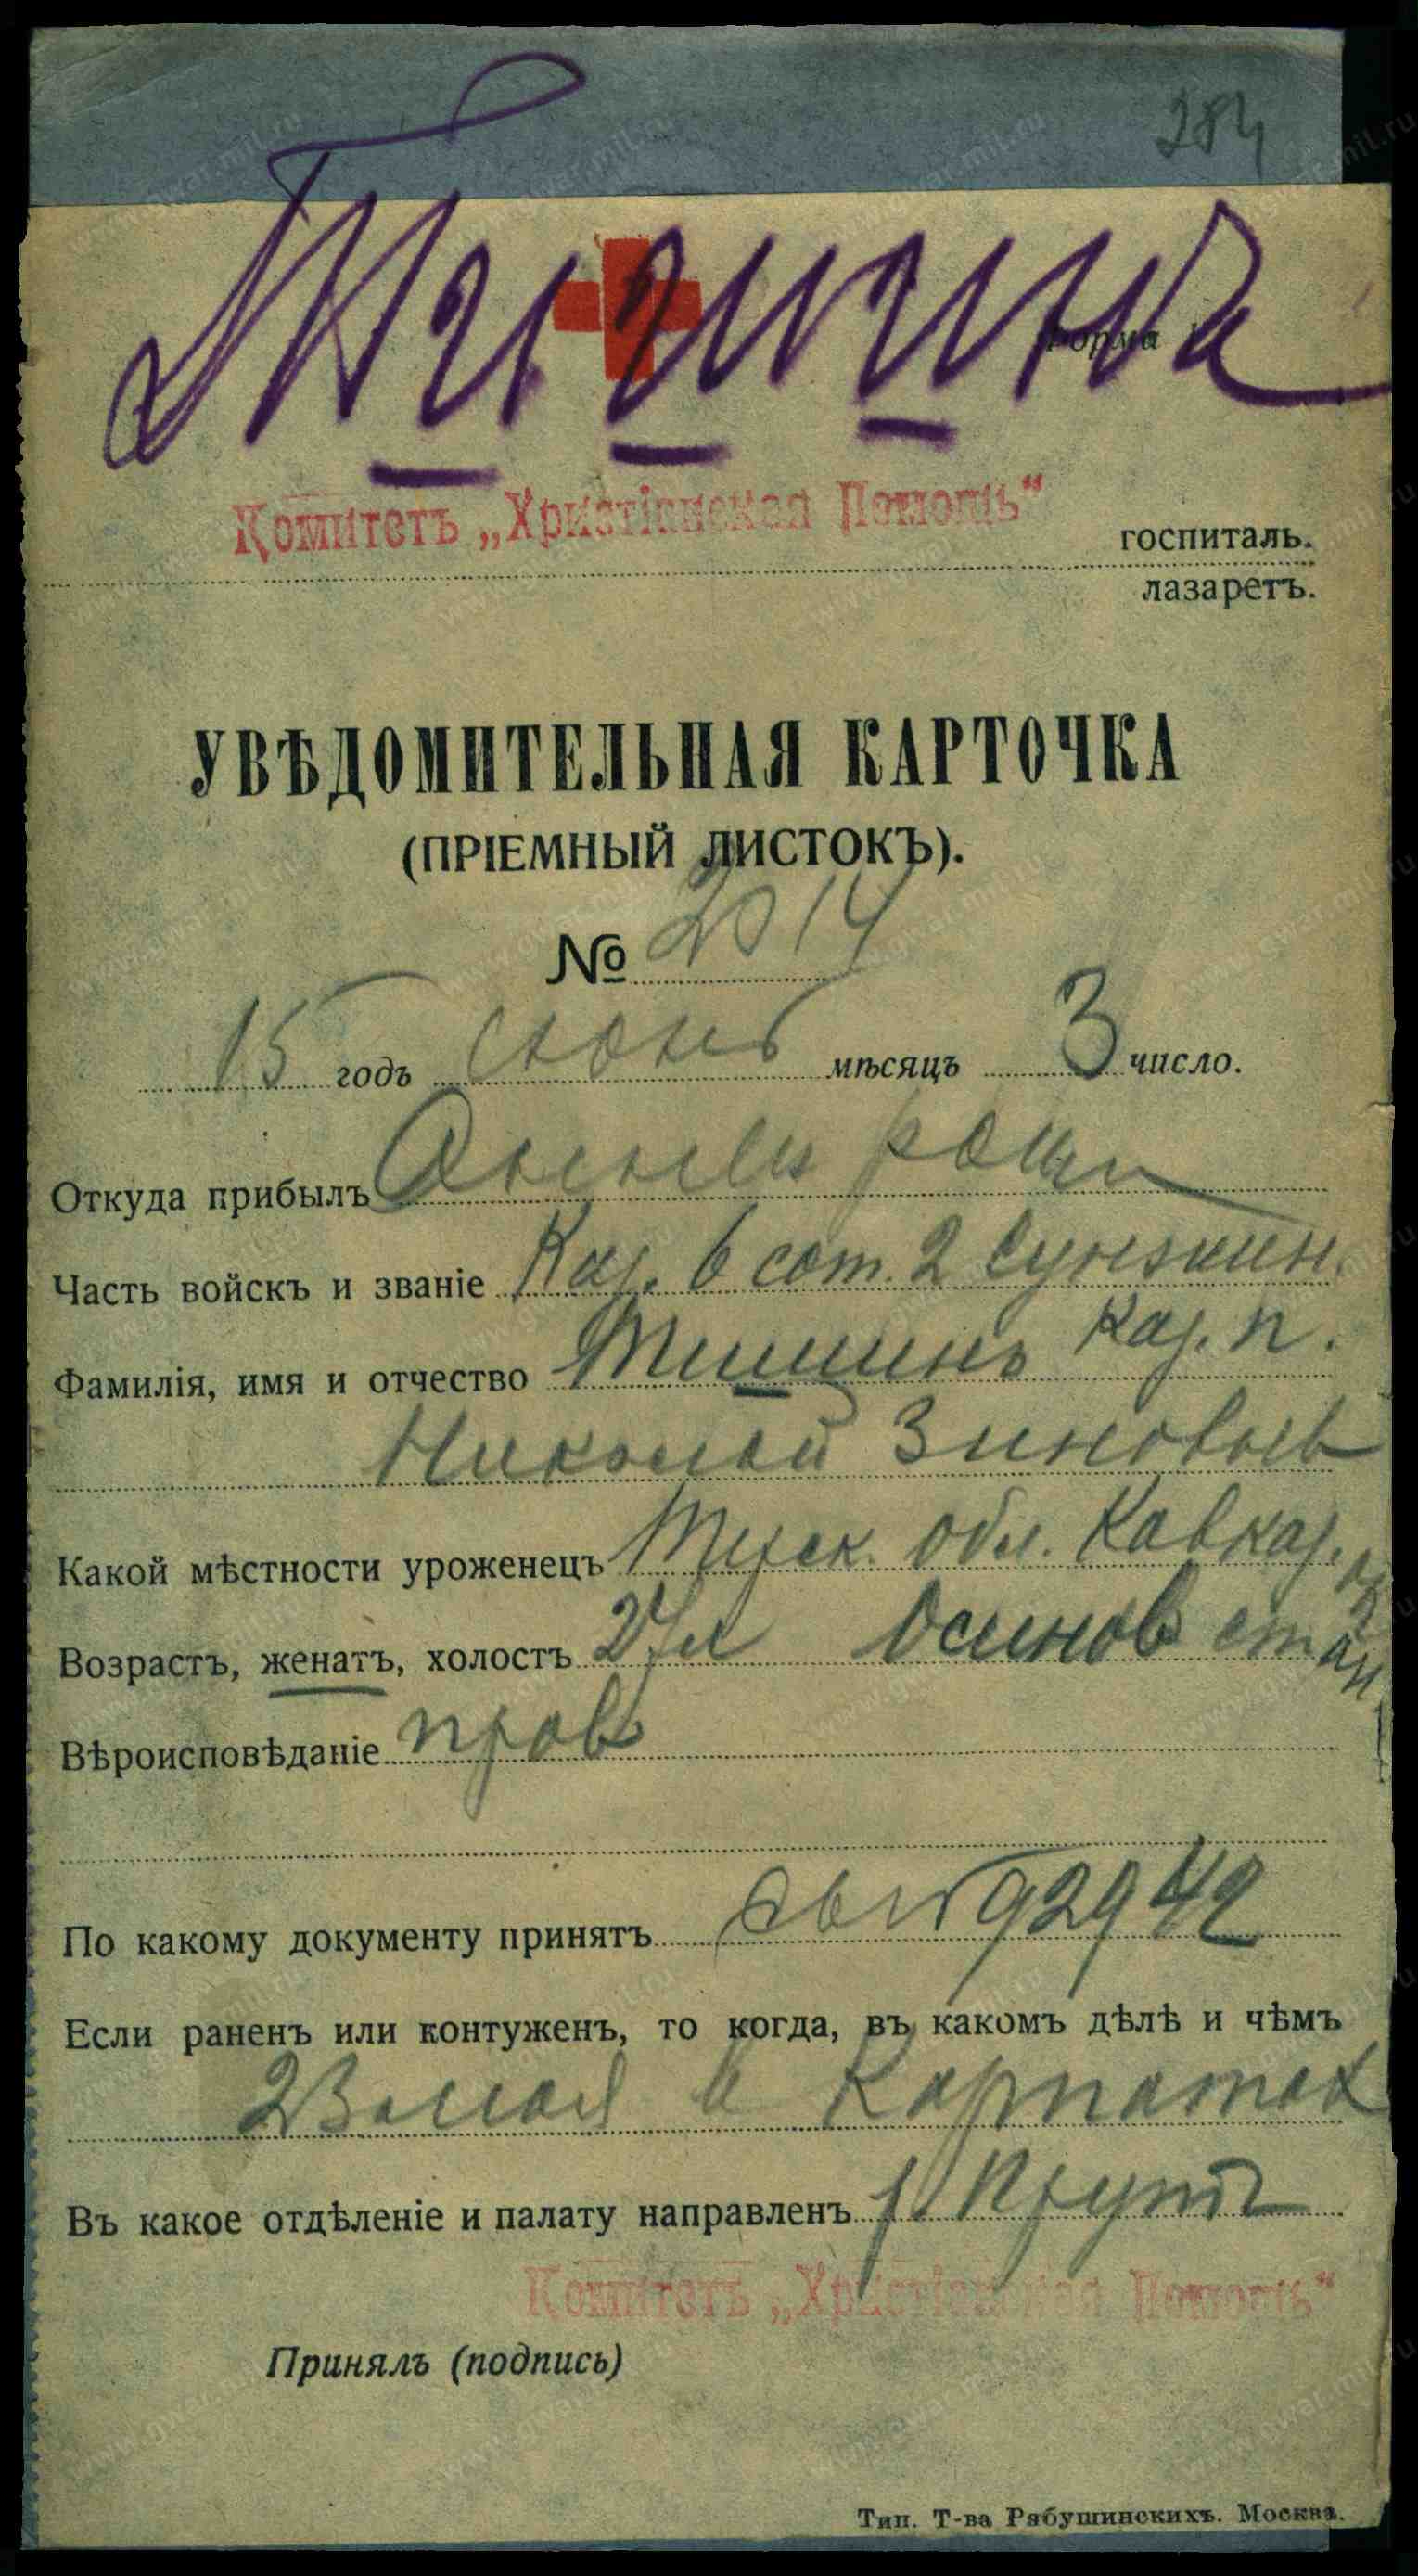 284
Тишина
Форма
Комитетъ „Христіанская Помощь“
госпиталь.
лазаретъ.
УВѢДОМИТЕЛЬНАЯ КАРТОЧКА
(ПРІЕМНЫЙ ЛИСТОКЪ).
№ 2014
15 годъ июнь мѣсяцъ 3 число.
Откуда прибылъ рощи
Часть войскъ и званіе Каз. 6 сот. 2 Сунженск.
каз. п.
Фамилія, имя и отчество Тишинъ
Николай Зиновьев
Какой мѣстности уроженецъ Терск. обл. Кавказ.
Возрастъ, женатъ, холостъ 27 л Осинов стан
Вѣроисповѣданіе прав
По какому документу принятъ 92942
Если раненъ или контуженъ, то когда, въ какомъ дѣлѣ и чѣмъ
23 мая в Карпатах
Въ какое отдѣленіе и палату направленъ
Комитетъ „Христіанская Помощь“
Принялъ (подпись)
Тип. Т-ва Рябушинскихъ. Москва.